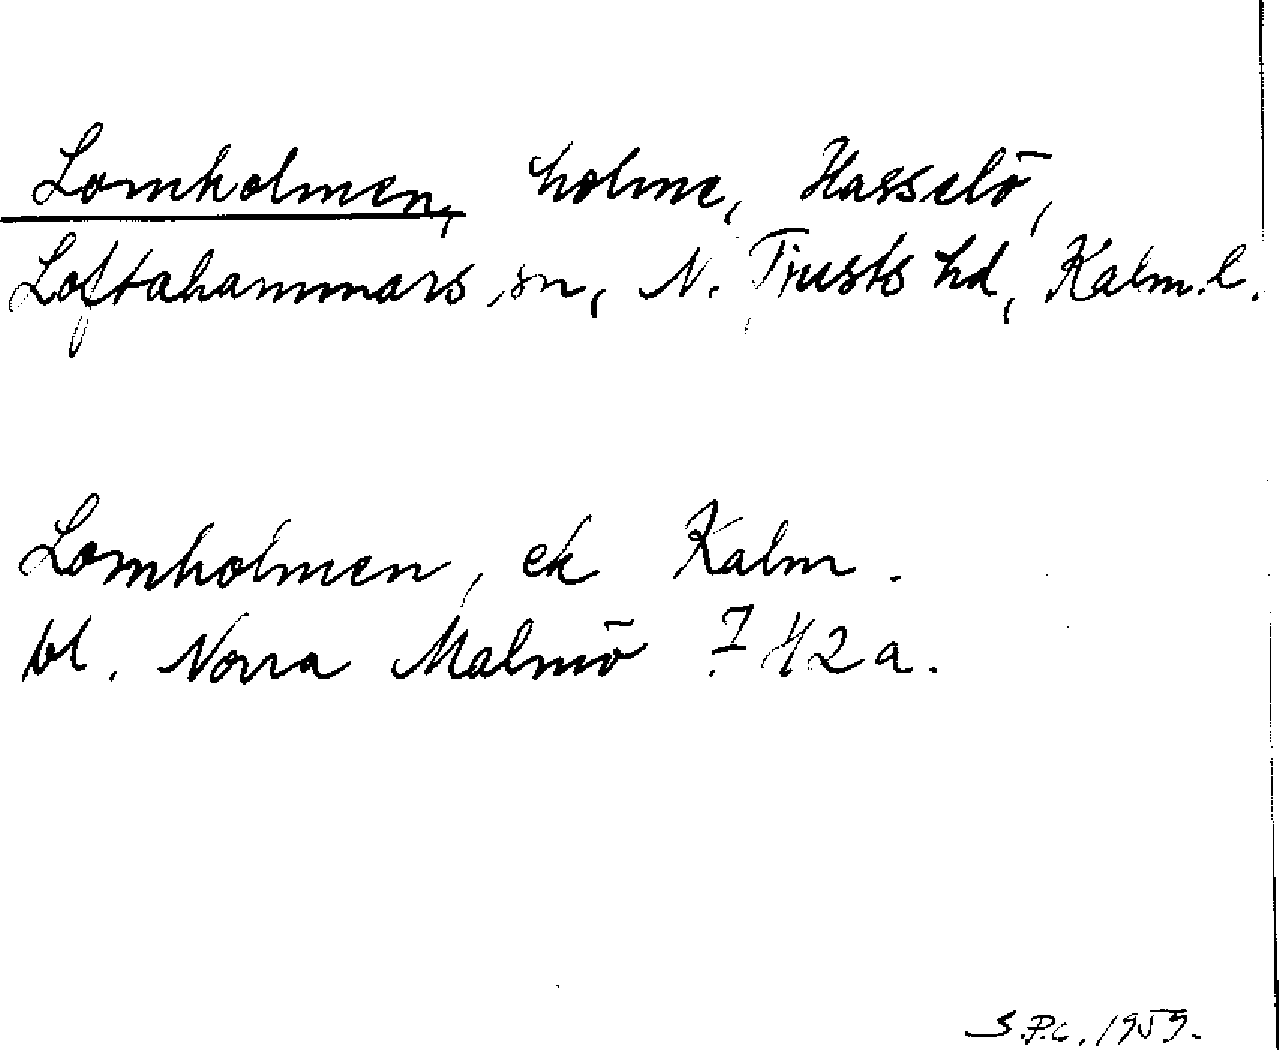 Lomholmen, holme, Hasselö,
Loftahammars sn, N. Tjusts hd, Kalm.l.
Lomholmen, ek Kalm.
bl. Norra Malmö 7 H2a.
S.P.C. 1959.